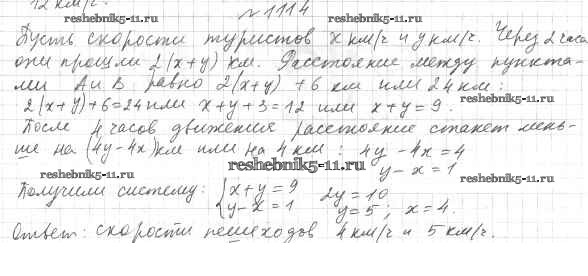 12 км/ч.
reshebnik5-11.ru
№1114
Пусть скорости туристов x км/ч и y км/ч. Через 2 часа
они прошли 2(x+y) км. Расстояние между пункта-
reshebnik5-11.ru
ми A и B равно 2(x+y)+6 км или 24 км:
2(x+y)+6=24 или x+y+3=12 или x+y=9.
reshebnik5-11.ru
После 4 часов движения расстояние станет мень-
ше на (4y-4x)км или на 4 км: 4y-4x=4
reshebnik5-11.ru
y-x=1
reshebnik5-11.ru
Получили систему: {x+y=9 2y=10
y-x=1 y=5; x=4.
reshebnik5-11.ru
Ответ: скорости пешеходов 4 км/ч и 5 км/ч.
reshebnik5-11.ru